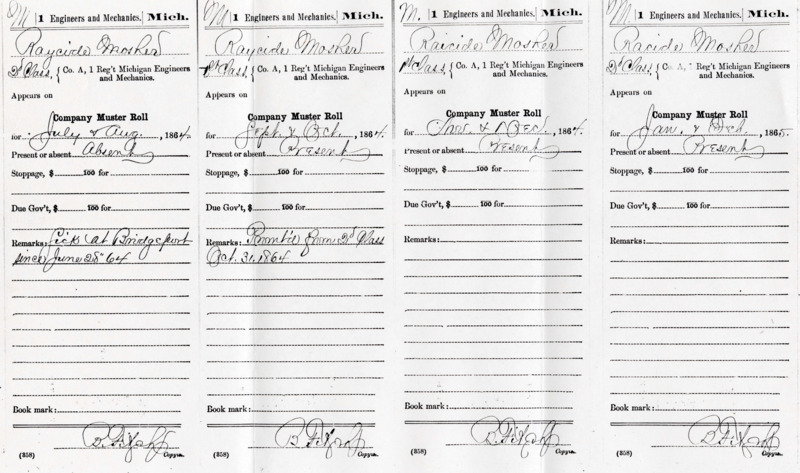 M | 1 Engineers and Mechanics. | Mich.
Raycide Mosher
2d Class. { Co. A, 1 Reg't Michigan Engineers
and Mechanics.
Appears on
Company Muster Roll
for July & Aug., 1864.
Present or absent Absent
Stoppage, $ 100 for
Due Gov't, $ 100 for
Remarks: Sick at Bridgeport
since June 28" 64
Book mark:
(358)
Copyist.
M | 1 Engineers and Mechanics. | Mich.
Raycide Mosher
1st Class. { Co. A, 1 Reg't Michigan Engineers
and Mechanics.
Appears on
Company Muster Roll
for Sept. & Oct., 1864.
Present or absent Present
Stoppage, $ 100 for
Due Gov't, $ 100 for
Remarks: Promt'd from 2d Class
Oct. 31, 1864
Book mark:
(358)
Copyist.
M. | 1 Engineers and Mechanics. | Mich.
Raicide Mosher
1st Class. { Co. A, 1 Reg't Michigan Engineers
and Mechanics.
Appears on
Company Muster Roll
for Nov. & Dec., 1864.
Present or absent Present
Stoppage, $ 100 for
Due Gov't, $ 100 for
Remarks:
Book mark:
(358)
Copyist.
M | 1 Engineers and Mechanics. | Mich.
Racide Mosher
2d Class. { Co. A, 1 Reg't Michigan Engineers
and Mechanics.
Appears on
Company Muster Roll
for Jan. & Feb., 1865.
Present or absent Present
Stoppage, $ 100 for
Due Gov't, $ 100 for
Remarks:
Book mark:
(358)
Copyist.